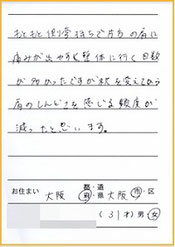 もともと側弯持ちで片方の肩に
痛みが出やすく整体に行く回数
が多かったですが枕を変えてから
肩のしんどさを感じる頻度が
減ったと思います。
お住まい 大阪 都・道・府・県 大阪 市・区
(31才) 男・女